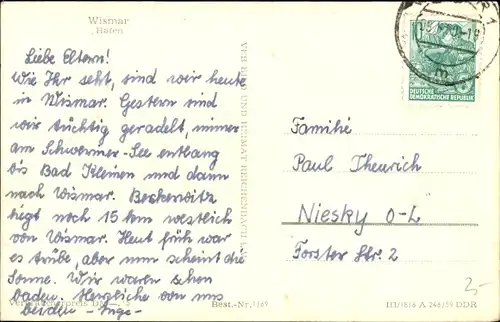 Wismar
Hafen
Liebe Eltern!
Wie Ihr seht, sind wir heute
in Wismar. Gestern sind
wir tüchtig geradelt, immer
am Schweriner-See entlang
bis Bad Kleinen und dann
nach Wismar. Beckerwitz
liegt noch 15 km westlich
von Wismar. Heut früh war
es trübe, aber nun scheint die
Sonne. Wir waren schon
baden. Herzliche von uns
beiden - Inge -
VEB BILD UND HEIMAT REICHENBACH
DEUTSCHE
DEMOKRATISCHE REPUBLIK
Familie
Paul Theurich
Niesky O-L
Forster Str. 2
Verbraucherpreis DM
Best.-Nr. 1/69
III/18/6 A 246/59 DDR